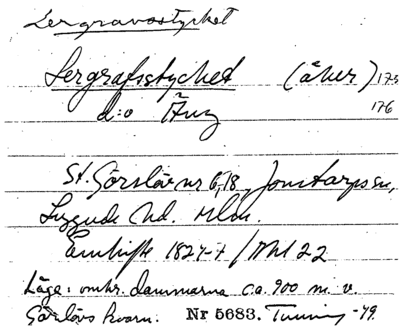 Lergravsstycket
Lergrafsstycket (åker) 175
d:o Äng 176
St. Görslöv nr 6,18, Jonstorps sn,
Luggude hd. Mlm.
Enskifte 1827-7 / Akt 22
Läge: omkr. dammarna ca. 900 m. v.
Görslövs kvarn. Nr 5683. -79.